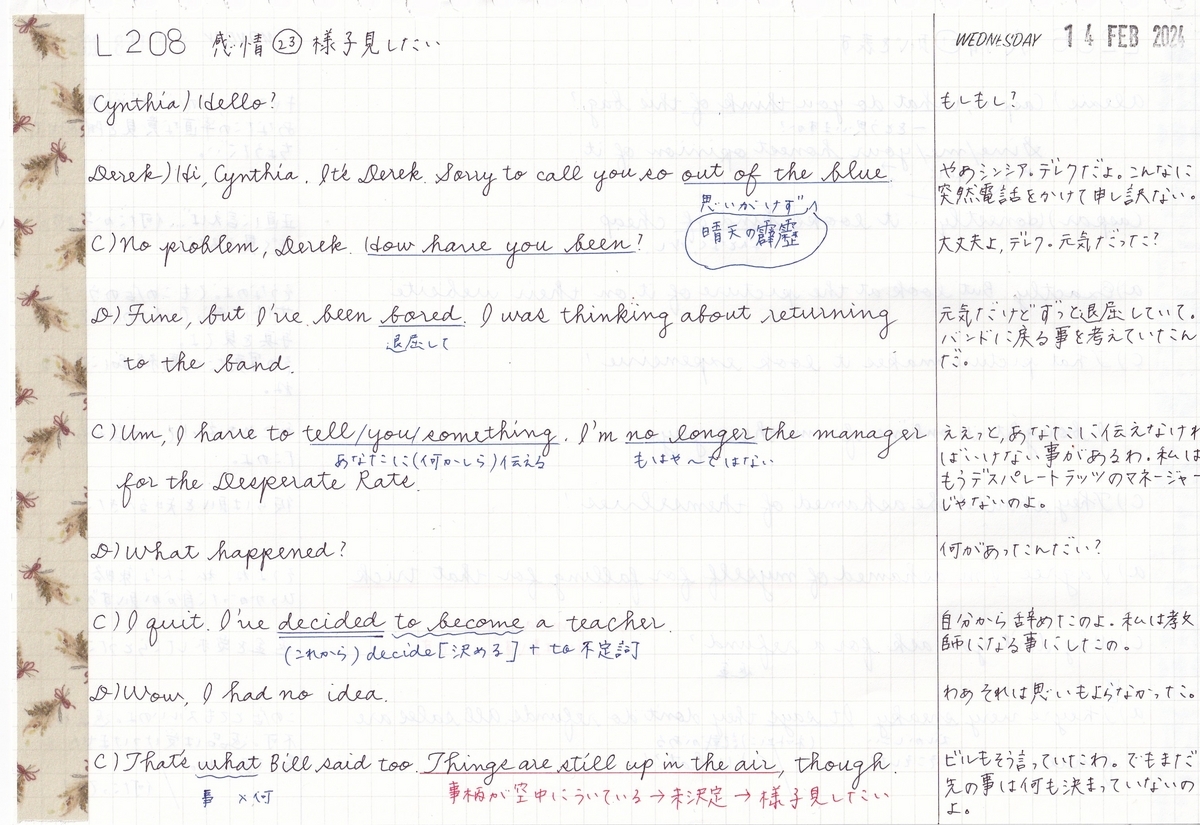 L 208 感情㉓ 様子見したい
WEDNESDAY 14 FEB 2024
Cynthia) Hello?
もしもし?
Derek) Hi, Cynthia. It's Derek. Sorry to call you so out of the blue.
思いがけず
晴天の霹靂
やあシンシア。デレクだよ。こんなに
突然電話をかけて申し訳ない。
C) No problem, Derek. How have you been?
大丈夫よ, デレク。元気だった?
D) Fine, but I've been bored. I was thinking about returning
退屈して
to the band.
元気だけどずっと退屈していて。
バンドに戻る事を考えていたん
だ。
C) Um, I have to tell/you/something. I'm no longer the manager
あなたに(何かしら)伝える
もはや〜ではない
for the Desperate Rats.
ええっと, あなたに伝えなけれ
ばいけない事があるわ。私は
もうデスパレートラッツのマネージャー
じゃないのよ。
D) What happened?
何があったんだい?
C) I quit. I've decided to become a teacher.
(これから) decide [決める] + to 不定詞
自分から辞めたのよ。私は教
師になる事にしたの。
D) Wow, I had no idea.
わあ それは思いもよらなかった。
C) That's what Bill said too. Things are still up in the air, though.
事 ×何
事柄が空中にういている→未決定→様子見したい
ビルもそう言っていたわ。でもまだ
先の事は何も決まっていないの
よ。